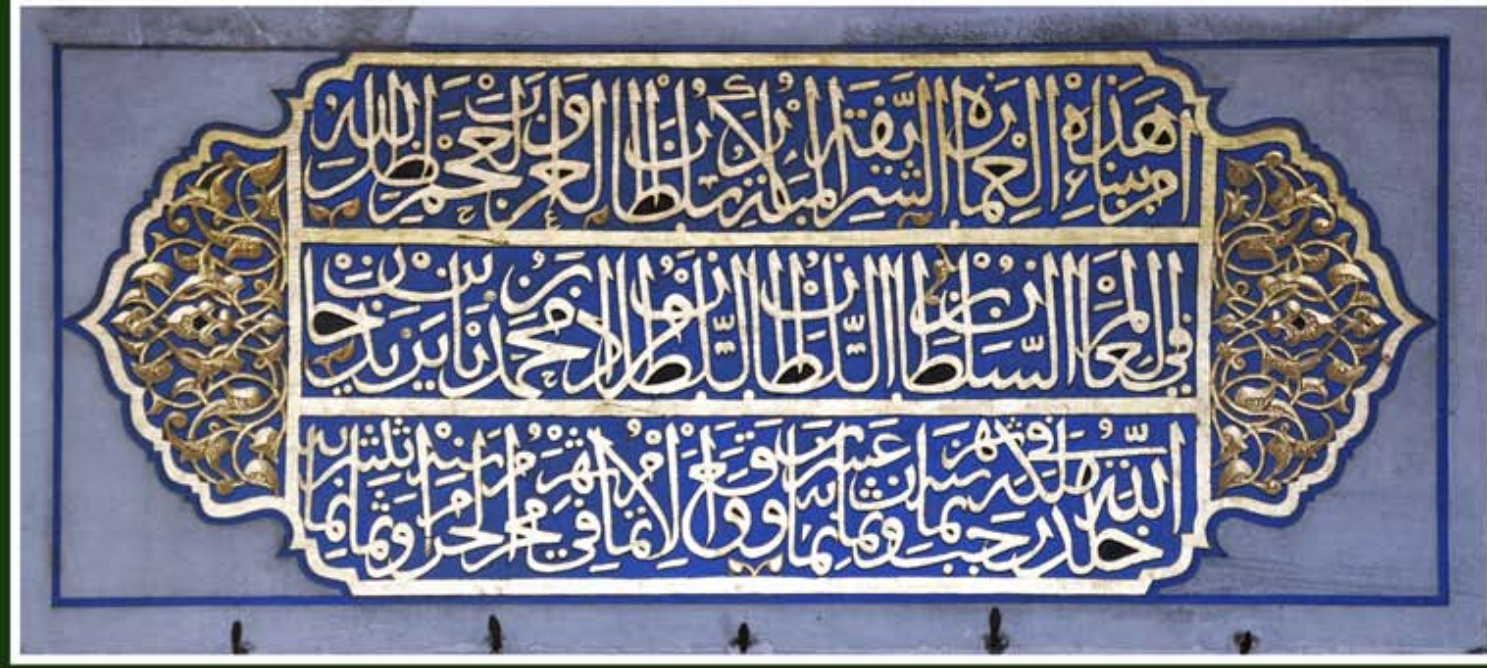 أمر ببناء هذه العمارة الشريفة المباركة سلطان العرب والعجم ظل الله
في العالم السلطان بن السلطان السلطان مراد بن محمد بن بايزيد خان
خلد الله ملكه في شهر رجب سنة ثمان وعشرين وثمانمائة ووقع الإتمام في شهر محرم الحرام سنة ثلثين وثمانمائة